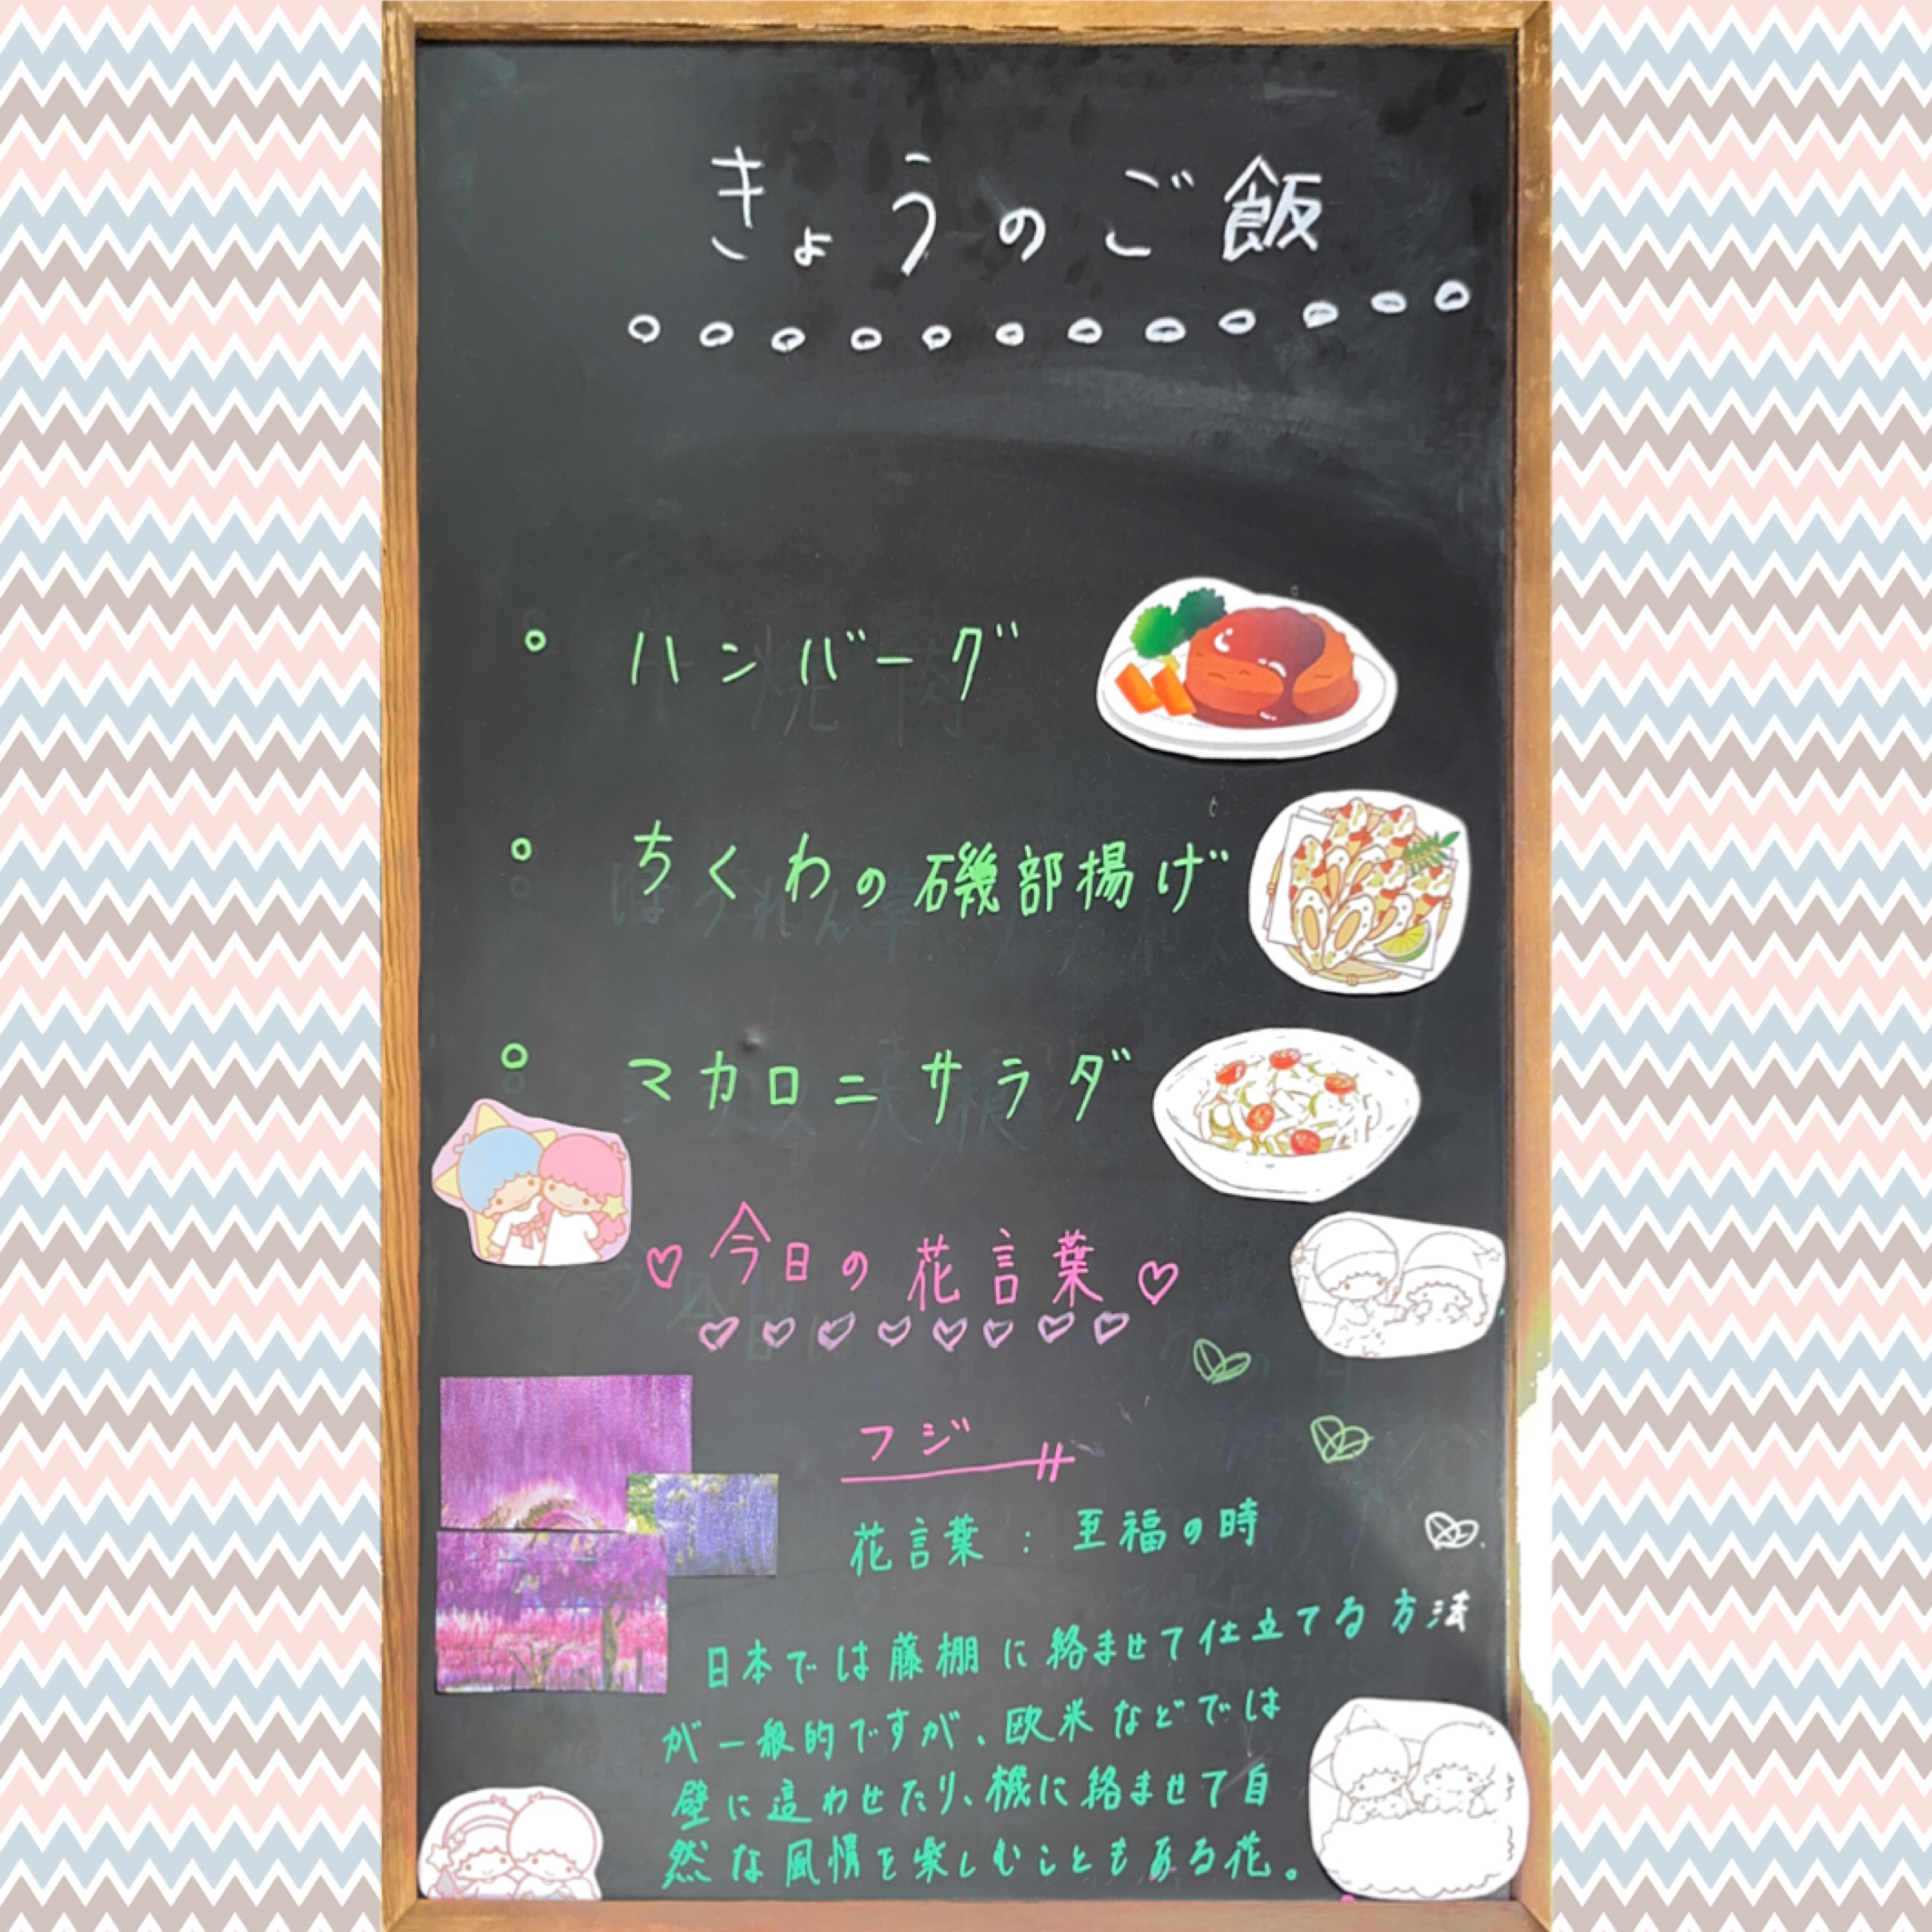 きょうのご飯
ハンバーグ
ちくわの磯部揚げ
マカロニサラダ
♡今日の花言葉♡
フジ
花言葉：至福の時
日本では藤棚に絡ませて仕立てる方法
が一般的ですが、欧米などでは
壁に這わせたり、機に絡ませて自
然な風情を楽しむこともある花。